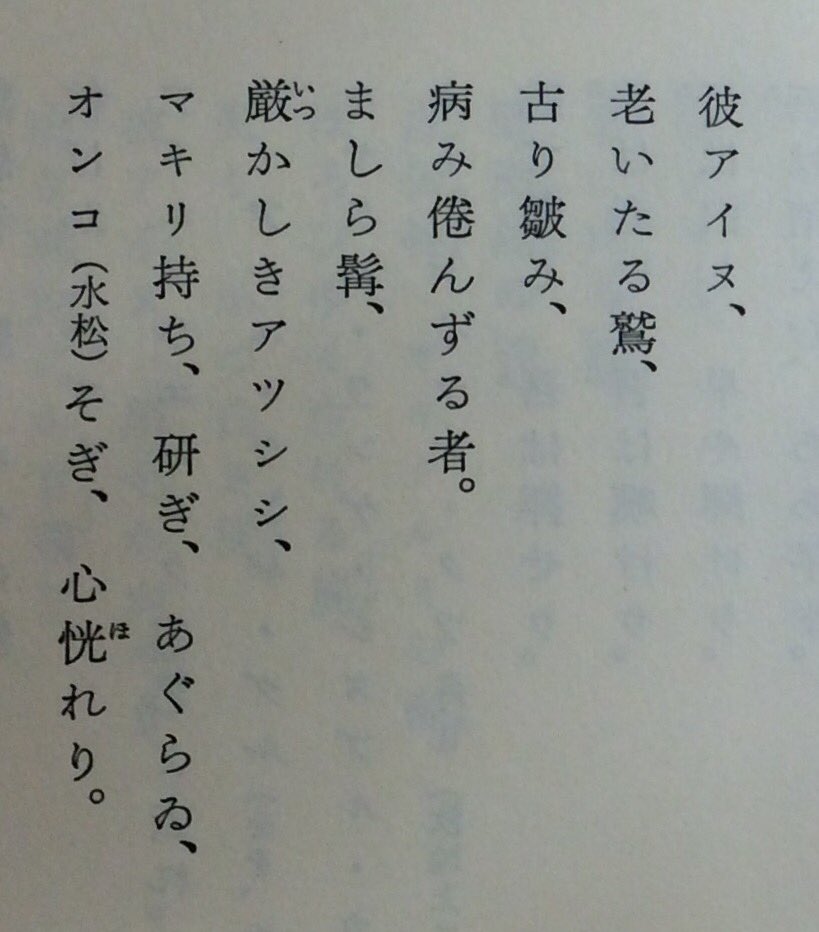 彼アイヌ、
老いたる鷲、
古り皺み、
病み倦んずる者。
ましら髯、
厳かしきアツシシ、
いつ
マキリ持ち、研ぎ、あぐらゐ、
オンコ（水松）そぎ、心恍れり。
ほ